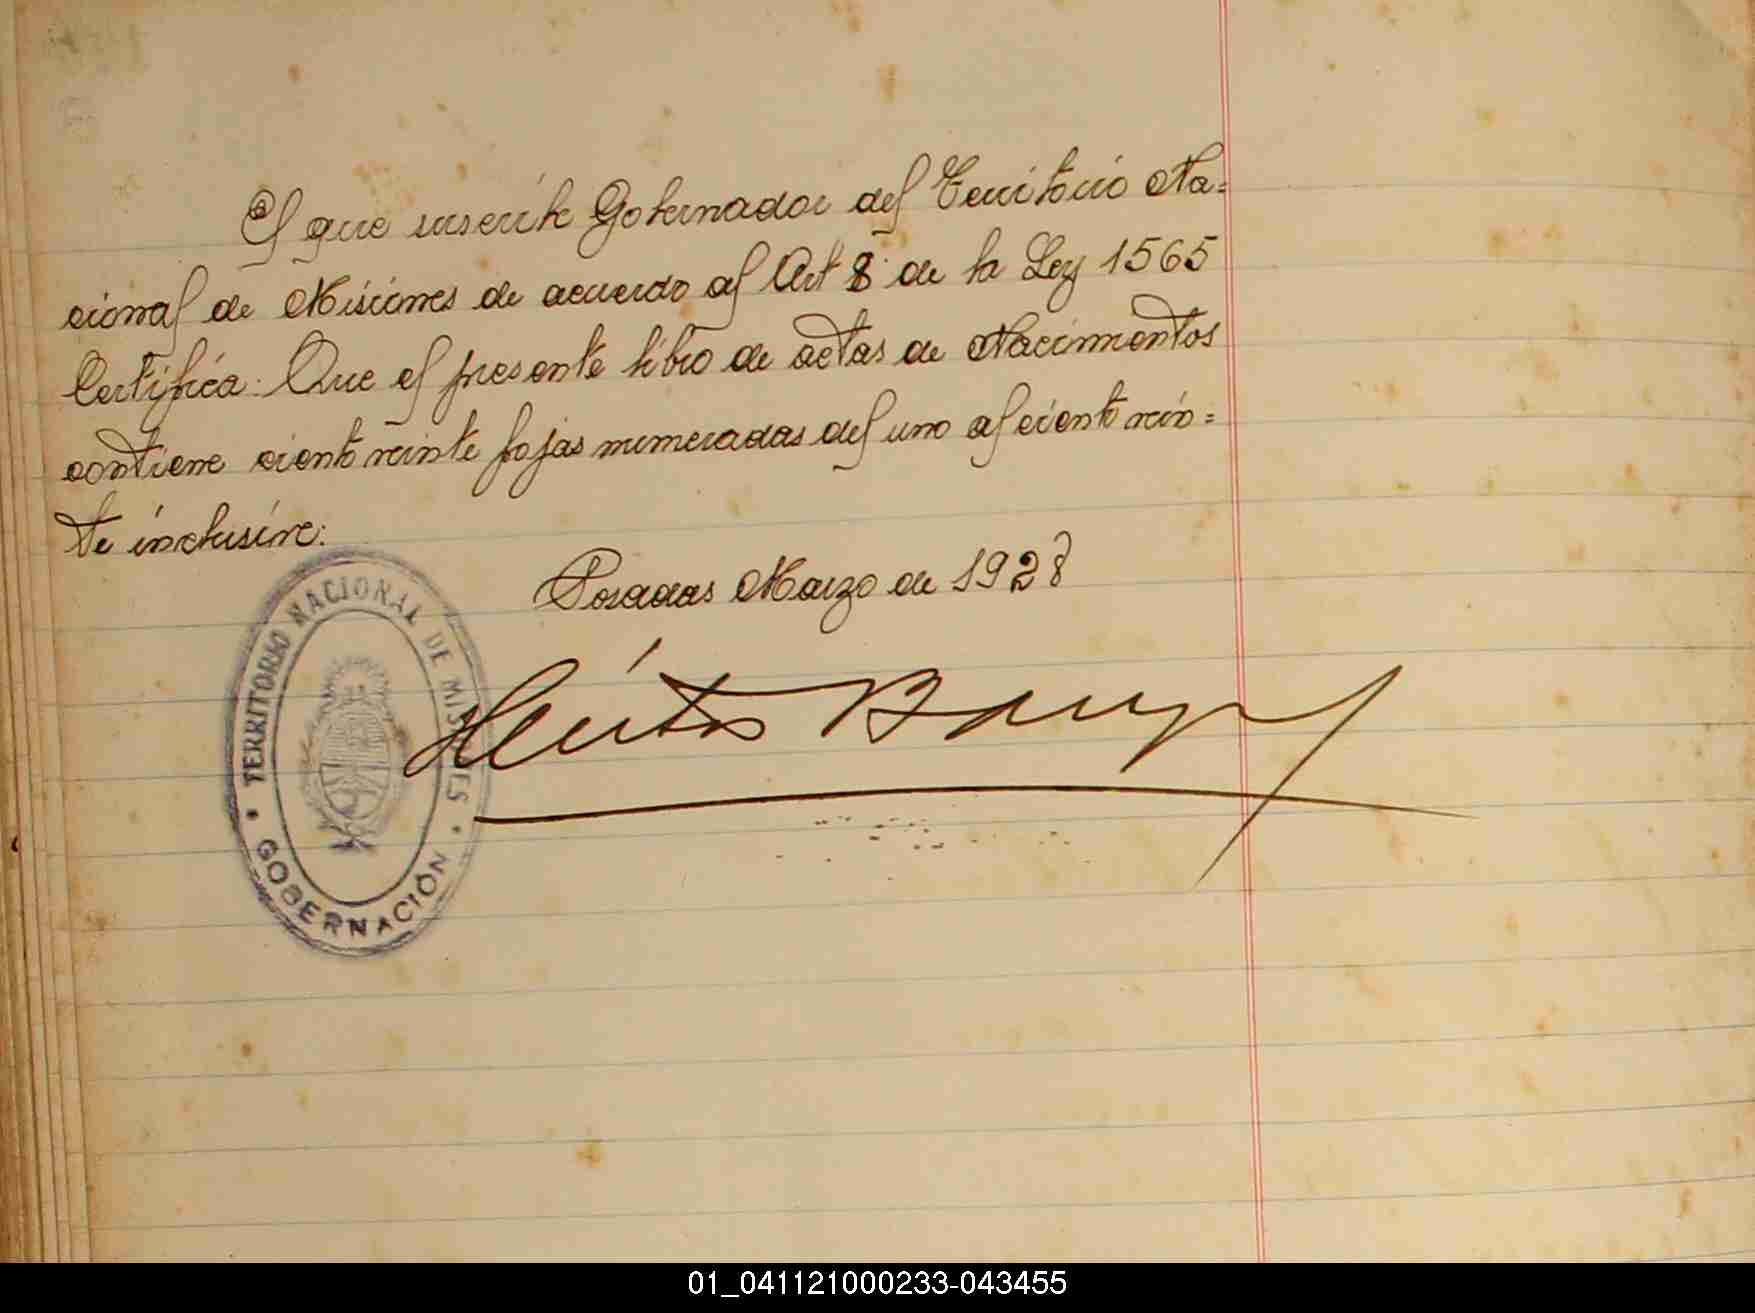 El que suscribe Gobernador del Territorio Na=
cional de Misiones de acuerdo al Art 8 de la Ley 1565
Certifica: Que el presente libro de actas de Nacimientos
contiene ciento veinte fojas numeradas del uno al ciento vein=
te inclusive:
Posadas Marzo de 1928
TERRITORIO NACIONAL DE MISIONES
GOBERNACIÓN
Héctor Barreyro
01_041121000233-043455